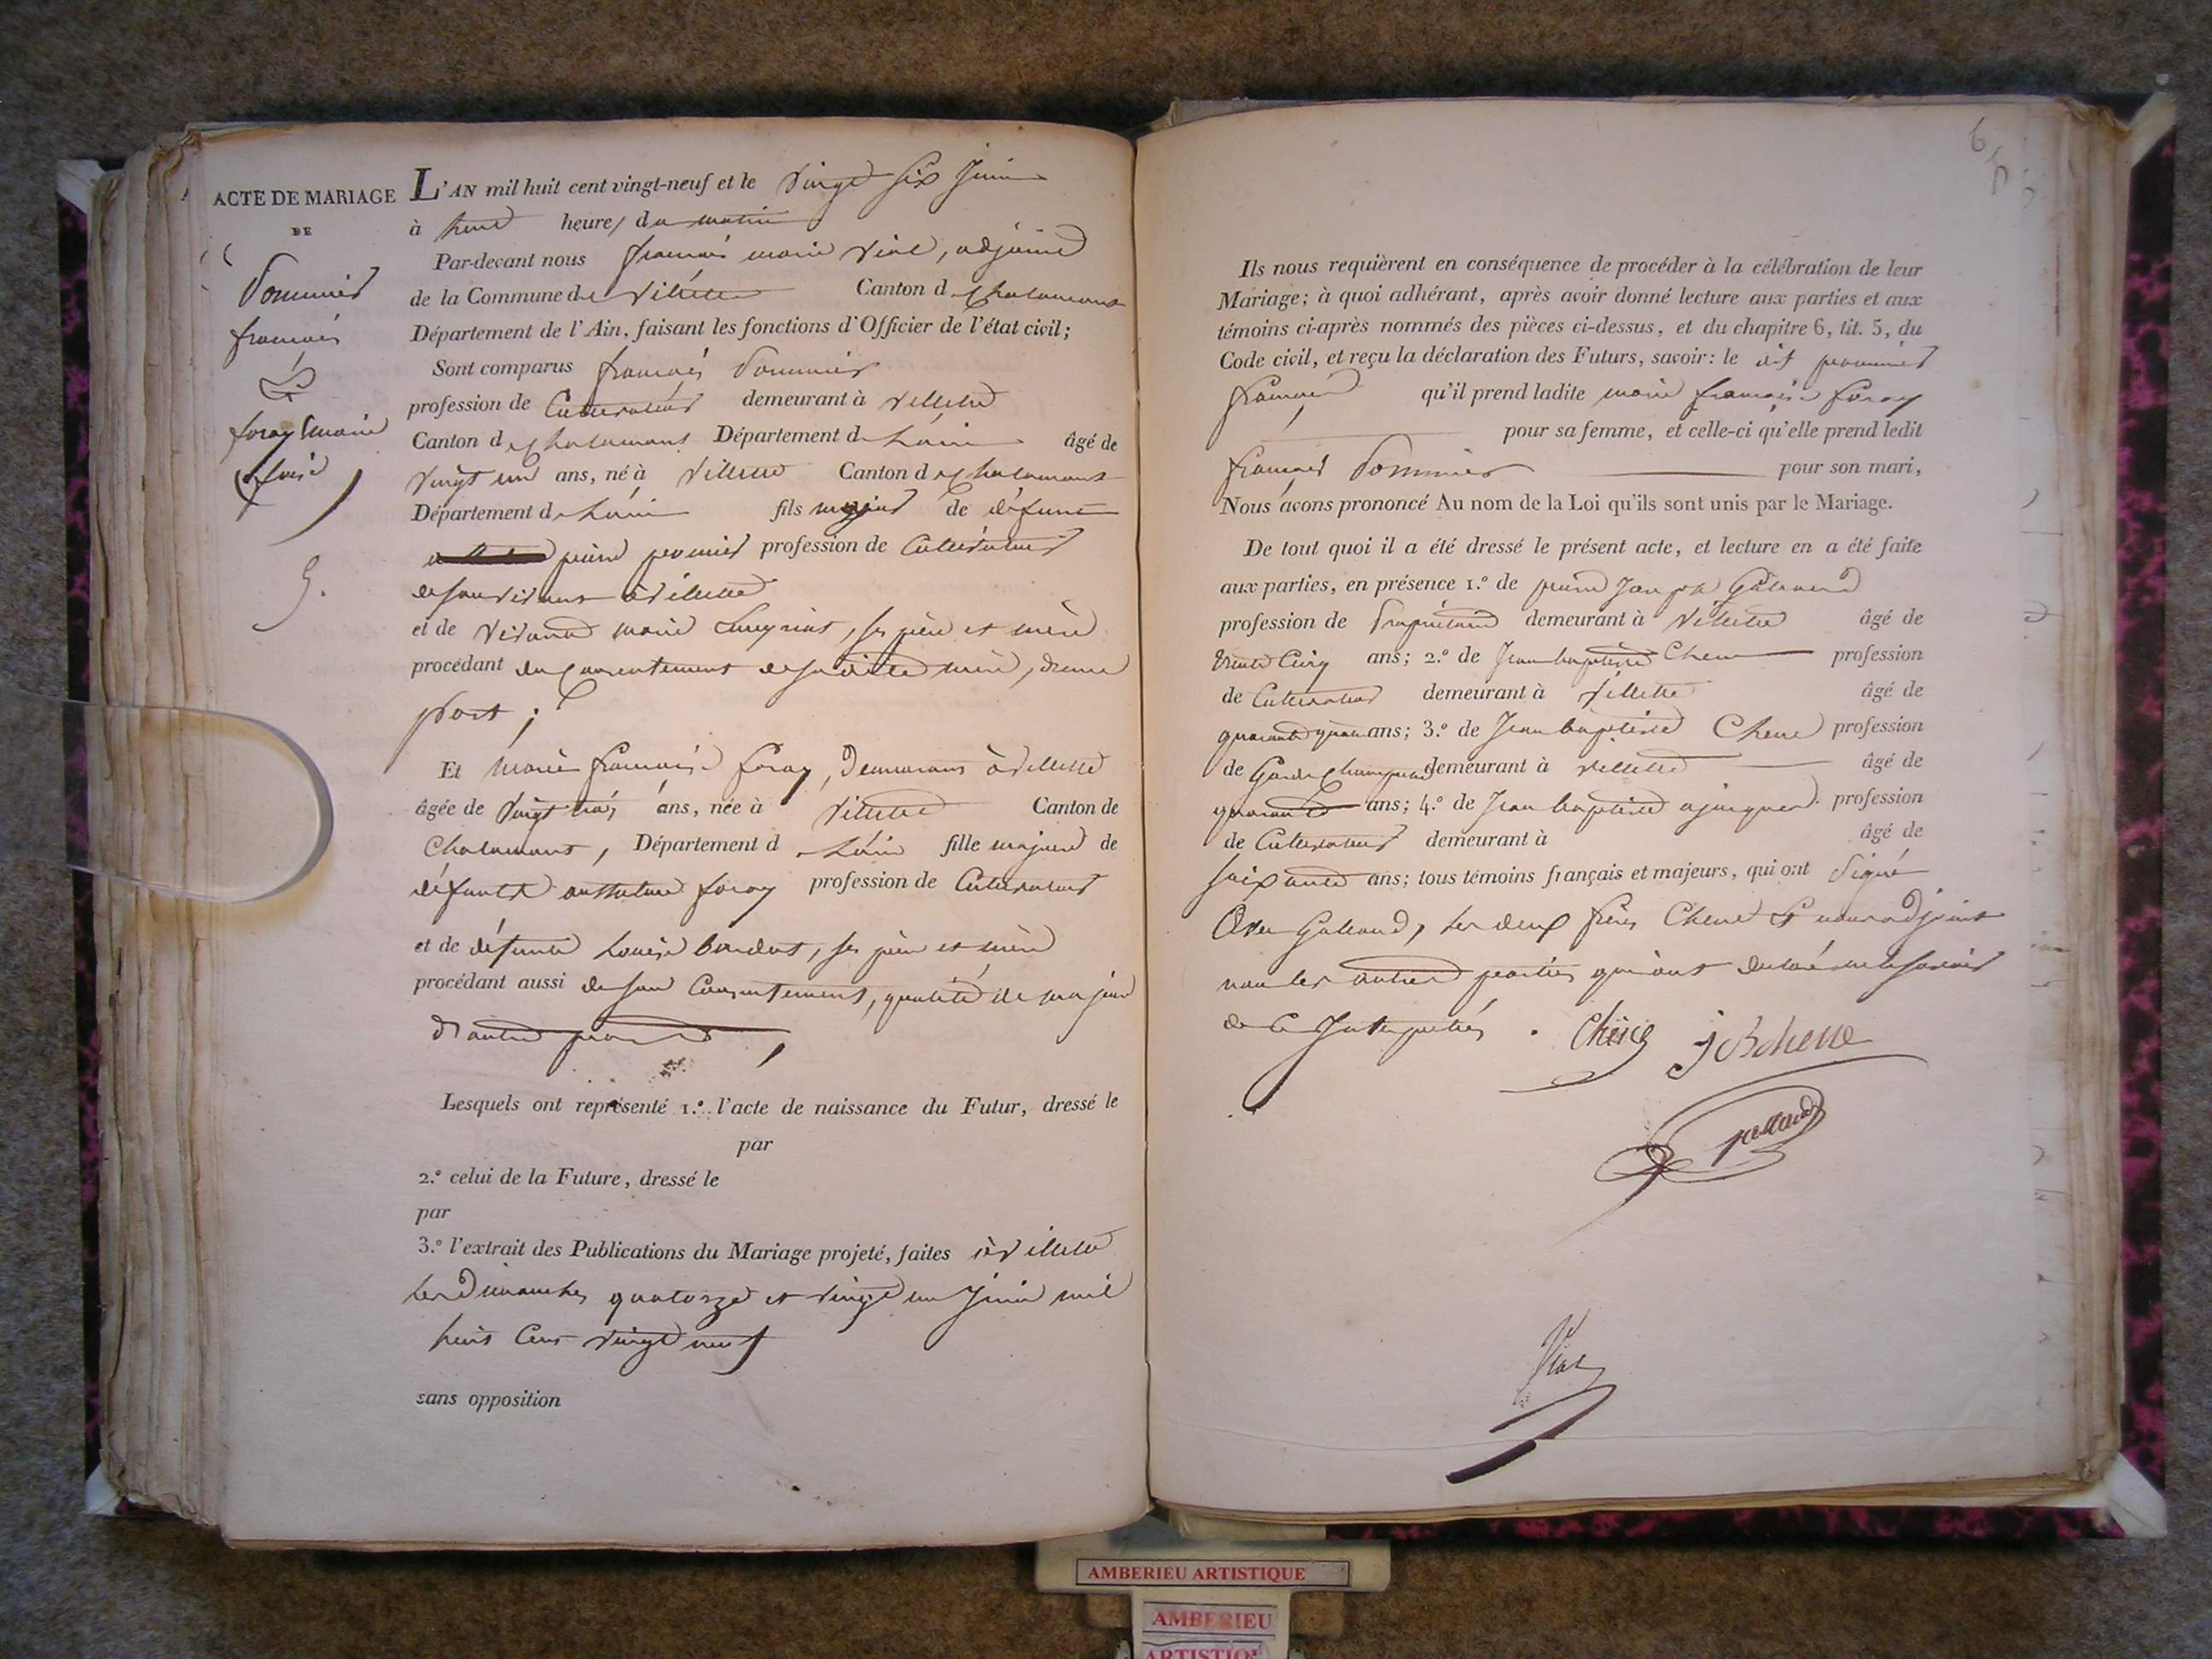 ACTE DE MARIAGE
DE
Pommier
françois
&
foray marie
L'AN mil huit cent vingt-neuf et le vingt six Juin
à heure, du matin
Par-devant nous françois marie Vial, adjoint
de la Commune de Villette Canton de Chalamont
Département de l'Ain, faisant les fonctions d'Officier de l'état civil;
Sont comparus françois Pommier
profession de Cultivateur demeurant à Villette
Canton de Chalamont Département de L'ain âgé de
vingt un ans, né à Villette Canton de Chalamont
Département de L'ain fils majeur de défunt
pierre pommier profession de Cultivateur
de son vivant à Villette
et de vivante marie, ses père et mère
procédant du Consentement de sa dite mère, d'une
part;
Et Marie françoise foray, Demeurant à Villette
âgée de vingt trois ans, née à Villette Canton de
Chalamont, Département d L'ain fille majeure de
défunt foray profession de Cultivateur
et de défunte Louise, ses père et mère
procédant aussi de son Consentement, qualité de majeure
D'autre part
Lesquels ont représenté 1.° l'acte de naissance du Futur, dressé le
par
2.° celui de la Future, dressé le
par
3.° l'extrait des Publications du Mariage projeté, faites à Villette
les Dimanches quatorze et vingt un Juin mil
huit Cent vingt neuf
sans opposition
Ils nous requièrent en conséquence de procéder à la célébration de leur
Mariage; à quoi adhérant, après avoir donné lecture aux parties et aux
témoins ci-après nommés des pièces ci-dessus, et du chapitre 6, tit. 5, du
Code civil, et reçu la déclaration des Futurs, savoir: le dit pommier
françois qu'il prend ladite marie françoise foray
pour sa femme, et celle-ci qu'elle prend ledit
françois Pommier pour son mari,
Nous avons prononcé Au nom de la Loi qu'ils sont unis par le Mariage.
De tout quoi il a été dressé le présent acte, et lecture en a été faite
aux parties, en présence 1.° de pierre Joseph Galland
profession de Propriétaire demeurant à Villette âgé de
trente Cinq ans; 2.° de Jean baptiste Chene profession
de Cultivateur demeurant à Villette âgé de
quarante quatre ans; 3.° de Jean baptiste Chene profession
de Garde Champetre demeurant à Villette âgé de
quarante ans; 4.° de Jean baptiste profession
de Cultivateur demeurant à âgé de
soixante ans; tous témoins français et majeurs, qui ont Signé
Avec Galland, les deux frères Chene & nous adjoint
non les autres parties qui ont déclaré ne le savoir
de ce Interpellés. Chene JBChene
galland
Vial
AMBERIEU ARTISTIQUE
AMBERIEU
ARTISTIQUE